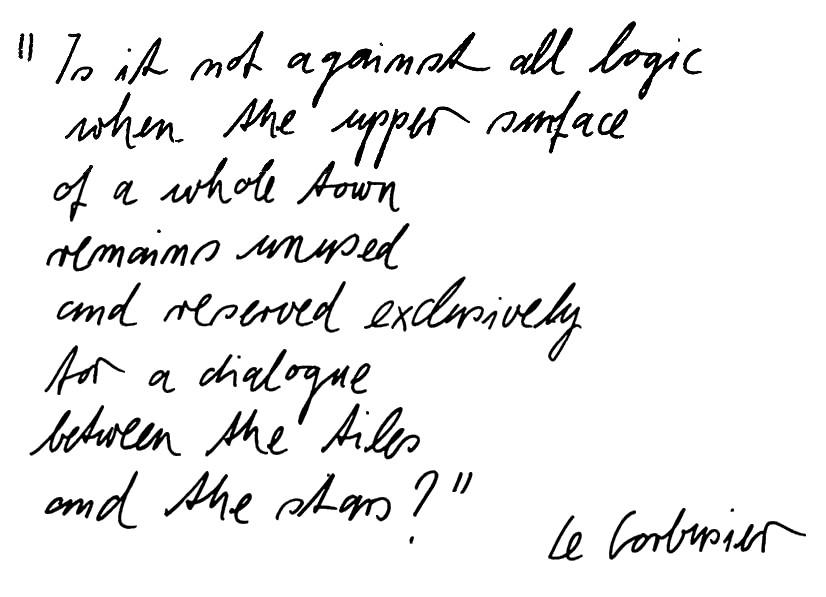 "Is it not against all logic
when the upper surface
of a whole town
remains unused
and reserved exclusively
for a dialogue
between the tiles
and the stars?"
Le Corbusier